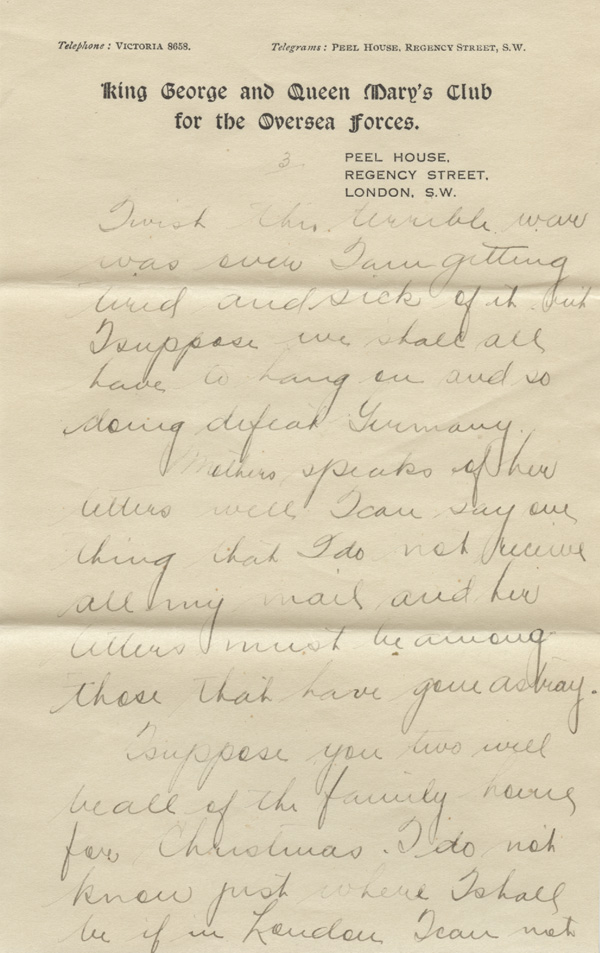 Telephone : VICTORIA 8658. Telegrams : PEEL HOUSE, REGENCY STREET, S.W.
King George and Queen Mary's Club
for the Oversea Forces.
3. PEEL HOUSE,
REGENCY STREET,
LONDON, S.W.
I wish this terrible war
was over I am getting
tired and sick of it. but
I suppose we shall all
have to hang on and so
doing defeat Germany.
Mothers speaks of her
letters well I can say one
thing that I do not receive
all my mail and her
letters must be among
those that have gone astray.
I suppose you two will
be all of the family home
for Christmas. I do not
know just where I shall
be if in London I can not